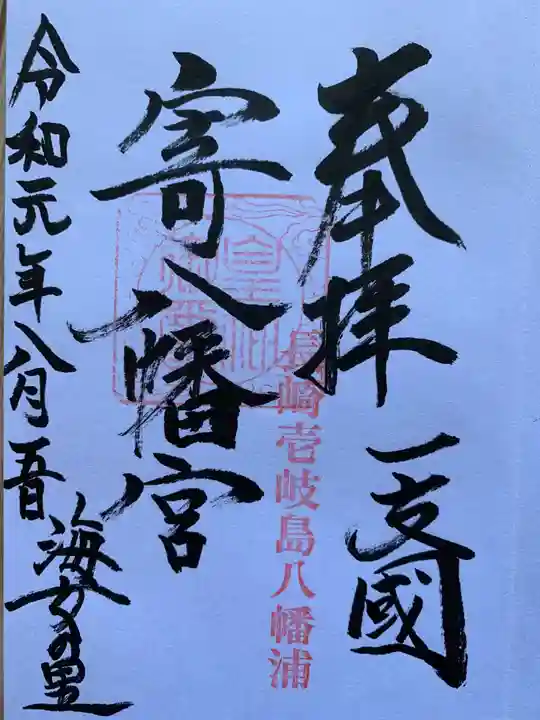 奉拝
一支國
長崎壱岐島八幡浦
寄八幡宮
令和元年八月五日
海女の里